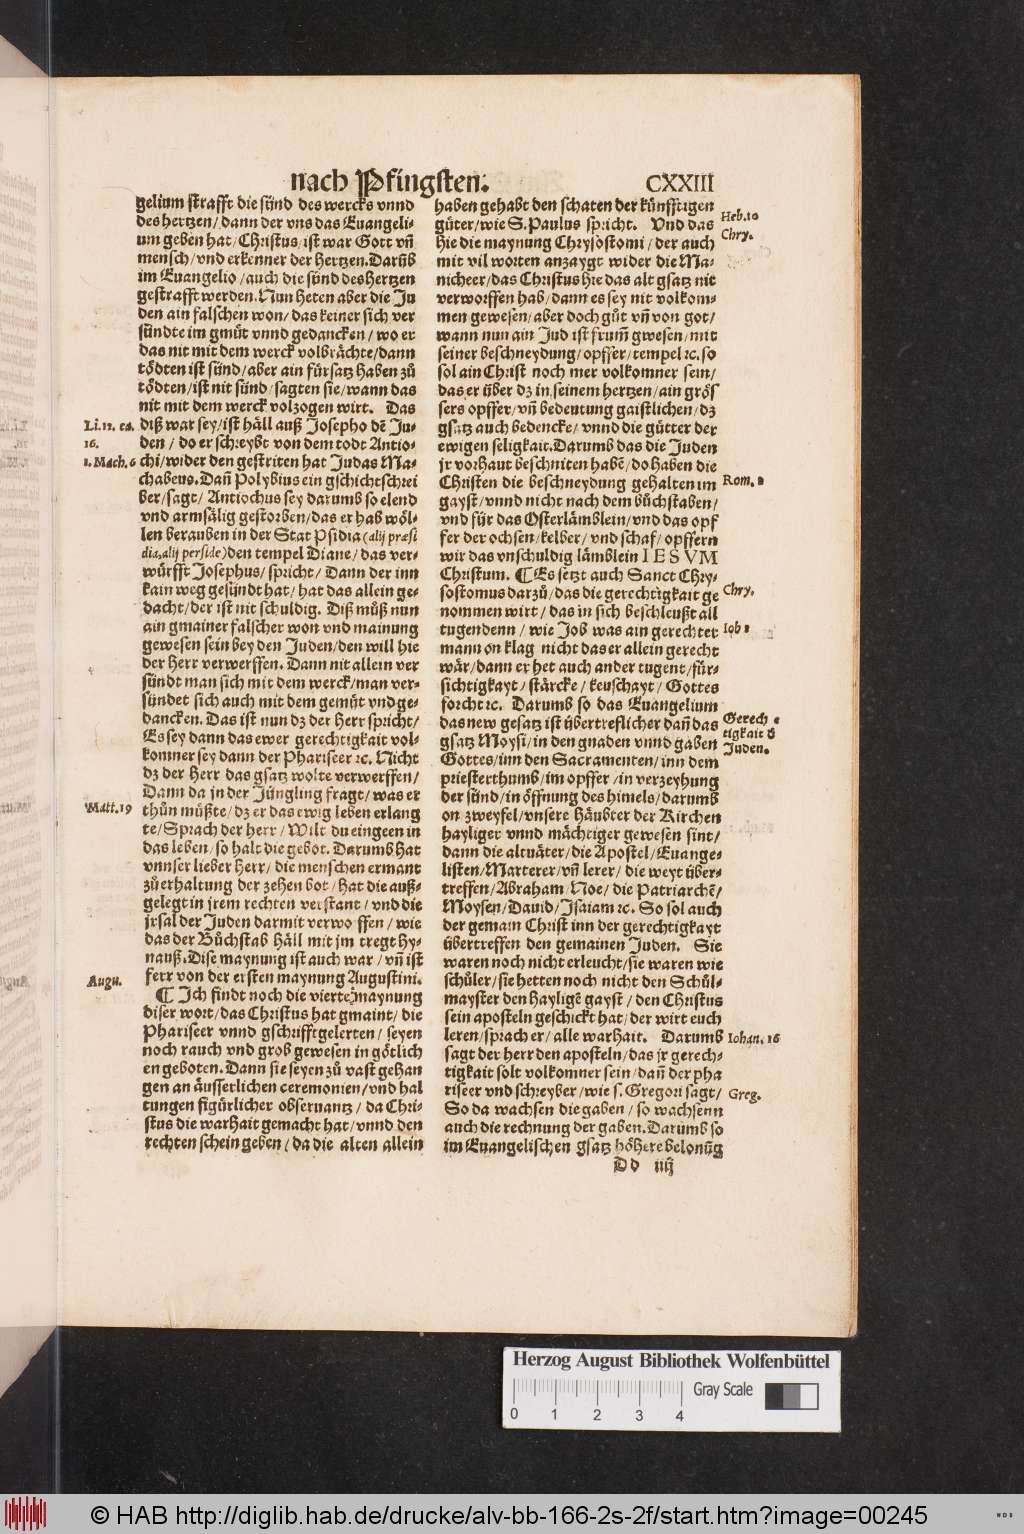 nach Pfingsten. CXXIII
gelium strafft die sünd des wercks vnnd
des hertzen / dann der vns das Euangeli-
um geben hat / Christus / ist war Gott vñ
mensch / vnd erkenner der Hertzen. Darũb
im Euangelio / auch die sünd des Hertzen
gestrafft werden. Nun heten aber die Ju
den ain falschen won / das keiner sich ver
sündte im gmüt vnnd gedancken / wo er
das nit mit dem werck volbrächte / dann
tödten ist sünd / aber ain fürsatz haben zů
tödten / ist nit sünd / sagten sie / wann das
nit mit dem werck volzogen wirt. Das
Li. 12. ca. diß war sey / ist häll auß Josepho dẽ Ju-
16. den / do er schreybt von dem todt Antio-
1. Mach. 6 chi / wider den gestriten hat Judas Ma-
chabeus. Dañ Polybius ein gschichtschrei
ber / sagt / Antiochus sey darumb so elend
vnd armsälig gestorben / das er hab wöl-
len berauben in der Stat Psidia (alij præsi
dia, alij perside) den tempel Diane / das ver-
würfft Josephus / spricht / Dann der inn
kain weg gesündt hat / hat das allein ge-
dacht / der ist nit schuldig. Diß můß nun
ain gmainer falscher won vnd mainung
gewesen sein bey den Juden / den will hie
der Herr verwerffen. Dann nit allein ver
sündt man sich mit dem werck / man ver-
sündet sich auch mit dem gemüt vnd ge-
dancken. Das ist nun dz der Herr spricht /
Es sey dann das ewer gerechtigkait vol-
komner sey dann der Phariseer ꝛc. Nicht
dz der Herr das gsatz wolte verwerffen /
Dann da jn der Jüngling fragt / was er
Matt. 19 thůn müßte / dz er das ewig leben erlang
te / Sprach der herr / Wilt du eingeen in
das leben / so halt die gebot. Darumb hat
vnnser lieber Herr / die menschen ermant
zů erhaltung der zehen bot / hat die auß-
gelegt in jrem rechten verstant / vnd die
jrsal der Juden darmit verwo ffen / wie
das der Bůchstab häll mit jm tregt hy-
nauß. Dise maynung ist auch war / vñ ist
Augu. ferr von der ersten maynung Augustini.
¶ Ich findt noch die vierte maynung
diser wort / das Christus hat gmaint / die
Phariseer vnnd gschrifftgelerten / seyen
noch rauch vnd grob gewesen in götlich
en geboten. Dann sie seyen zů vast gehan
gen an äusserlichen ceremonien / vnd hal
tungen figürlicher obseruantz / da Chri-
stus die warhait gemacht hat / vnnd den
rechten schein geben / da die alten allein
haben gehabt den schaten der künfftigen
güter / wie S. Paulus spricht. Vnd das Heb. 10
hie die maynung Chrysostomi / der auch Chry.
mit vil worten anzaygt wider die Ma-
nicheer / das Christus hie das alt gsatz nit
verworffen hab / dann es sey nit volkom-
men gewesen / aber doch gůt vñ von got /
wann nun ain Jud ist frum̃ gwesen / mit
seiner beschneydung / opffer / tempel ꝛc. so
sol ain Christ noch mer volkomner sein /
das er über dz in seinem hertzen / ain grös
sers opffer / vñ bedeutung gaistlichen / dz
gsatz auch bedencke / vnnd die gütter der
ewigen seligkait. Darumb das die Juden
jr vorhaut beschniten habẽ / do haben die
Christen die beschneydung gehalten im Rom. 2
gayst / vnnd nicht nach dem bůchstaben /
vnd für das Osterlämblein / vnd das opf
fer der ochsen / kelber / vnd schaf / opffern
wir das vnschuldig lämblein IESVM
Christum. ¶ Es setzt auch Sanct Chry-
sostomus darzů / das die gerechtigkait ge Chry.
nommen wirt / das in sich beschleußt all
tugendenn / wie Job was ain gerechter Iob 1
mann on klag nicht das er allein gerecht
wär / dann er het auch ander tugent / für-
sichtigkayt / stärcke / keuschayt / Gottes
forcht ꝛc. Darumb so das Euangelium
das new gesatz ist übertreflicher dañ das Gerech
gsatz Moysi / in den gnaden vnnd gaben tigkait d̕
Gottes / inn den Sacramenten / inn dem Juden.
priesterthumb / im opffer / in verzeyhung
der sünd / in öffnung des himels / darumb
on zweyfel / vnsere Häubter der Kirchen
hayliger vnnd mächtiger gewesen sint /
dann die altuäter / die Apostel / Euange-
listen / Marterer / vñ lerer / die weyt über-
treffen / Abraham / Noe / die Patriarchẽ /
Moysen / Dauid / Isaiam ꝛc. So sol auch
der gemain Christ inn der gerechtigkayt
übertreffen den gemainen Juden. Sie
waren noch nicht erleucht / sie waren wie
schůler / sie hetten noch nicht den Schůl-
mayster den Hayligẽ gayst / den Christus
sein aposteln geschickt hat / der wirt euch
leren / sprach er / alle warhait. Darumb Iohan. 16
sagt der herr den aposteln / das jr gerech-
tigkait solt volkomner sein / dañ der pha
riseer vnd schreyber / wie s. Gregori sagt / Greg.
So da wachsen die gaben / so wachsenn
auch die rechnung der gaben. Darumb so
im Euangelischen gsatz höhere belonũg
Dd iiij
Herzog August Bibliothek Wolfenbüttel
0 1 2 3 4 Gray Scale
© HAB http://diglib.hab.de/drucke/alv-bb-166-2s-2f/start.htm?image=00245